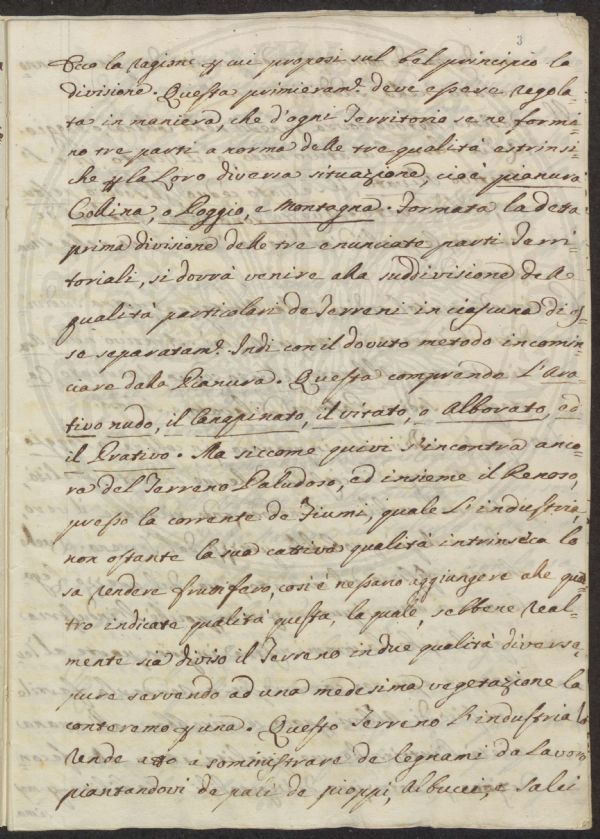 3
Ecco la ragione p cui proposi sul bel principio la
divisione. Questa primieram.e deve essere regola-
ta in maniera, che d'ogni Territorio se ne formi-
no tre parti a norma delle tre qualità estrinsi-
che p la Loro diversa situazione, cioè pianura
Collina, o Poggio, e Montagna. Formata la detta
prima divisione delle tre enunciate parti Terri-
toriali, si dovrà venire alla suddivisione delle
qualità particolari de Terreni in ciascuna di es-
sa separatam.e Indi con il dovuto metodo incomin-
ciare dalla Pianura. Questa comprende L'Ara-
tivo nudo, il Canapinato, il vitato, o Alborato, ed
il Prativo. Ma siccome quivi s'incontra anco-
ra del Terreno Paludoso, ed insieme il Renoso,
presso la corrente de Fiumi, quale L'industria,
non ostante la sua cattiva qualità intrinseca lo
sa rendere fruttifero, così è nessario aggiungere alle qua-
tro indicate qualità questa, la quale, sebbene real-
mente sia diviso il Terreno in due qualità diverse,
pure servendo ad una medesima vegetazione la
conteremo p una. Questo Terreno L'industria lo
rende atto a somministrare de legnami da Lavoro
piantandovi de pali de pioppi, Albucci, e Salci